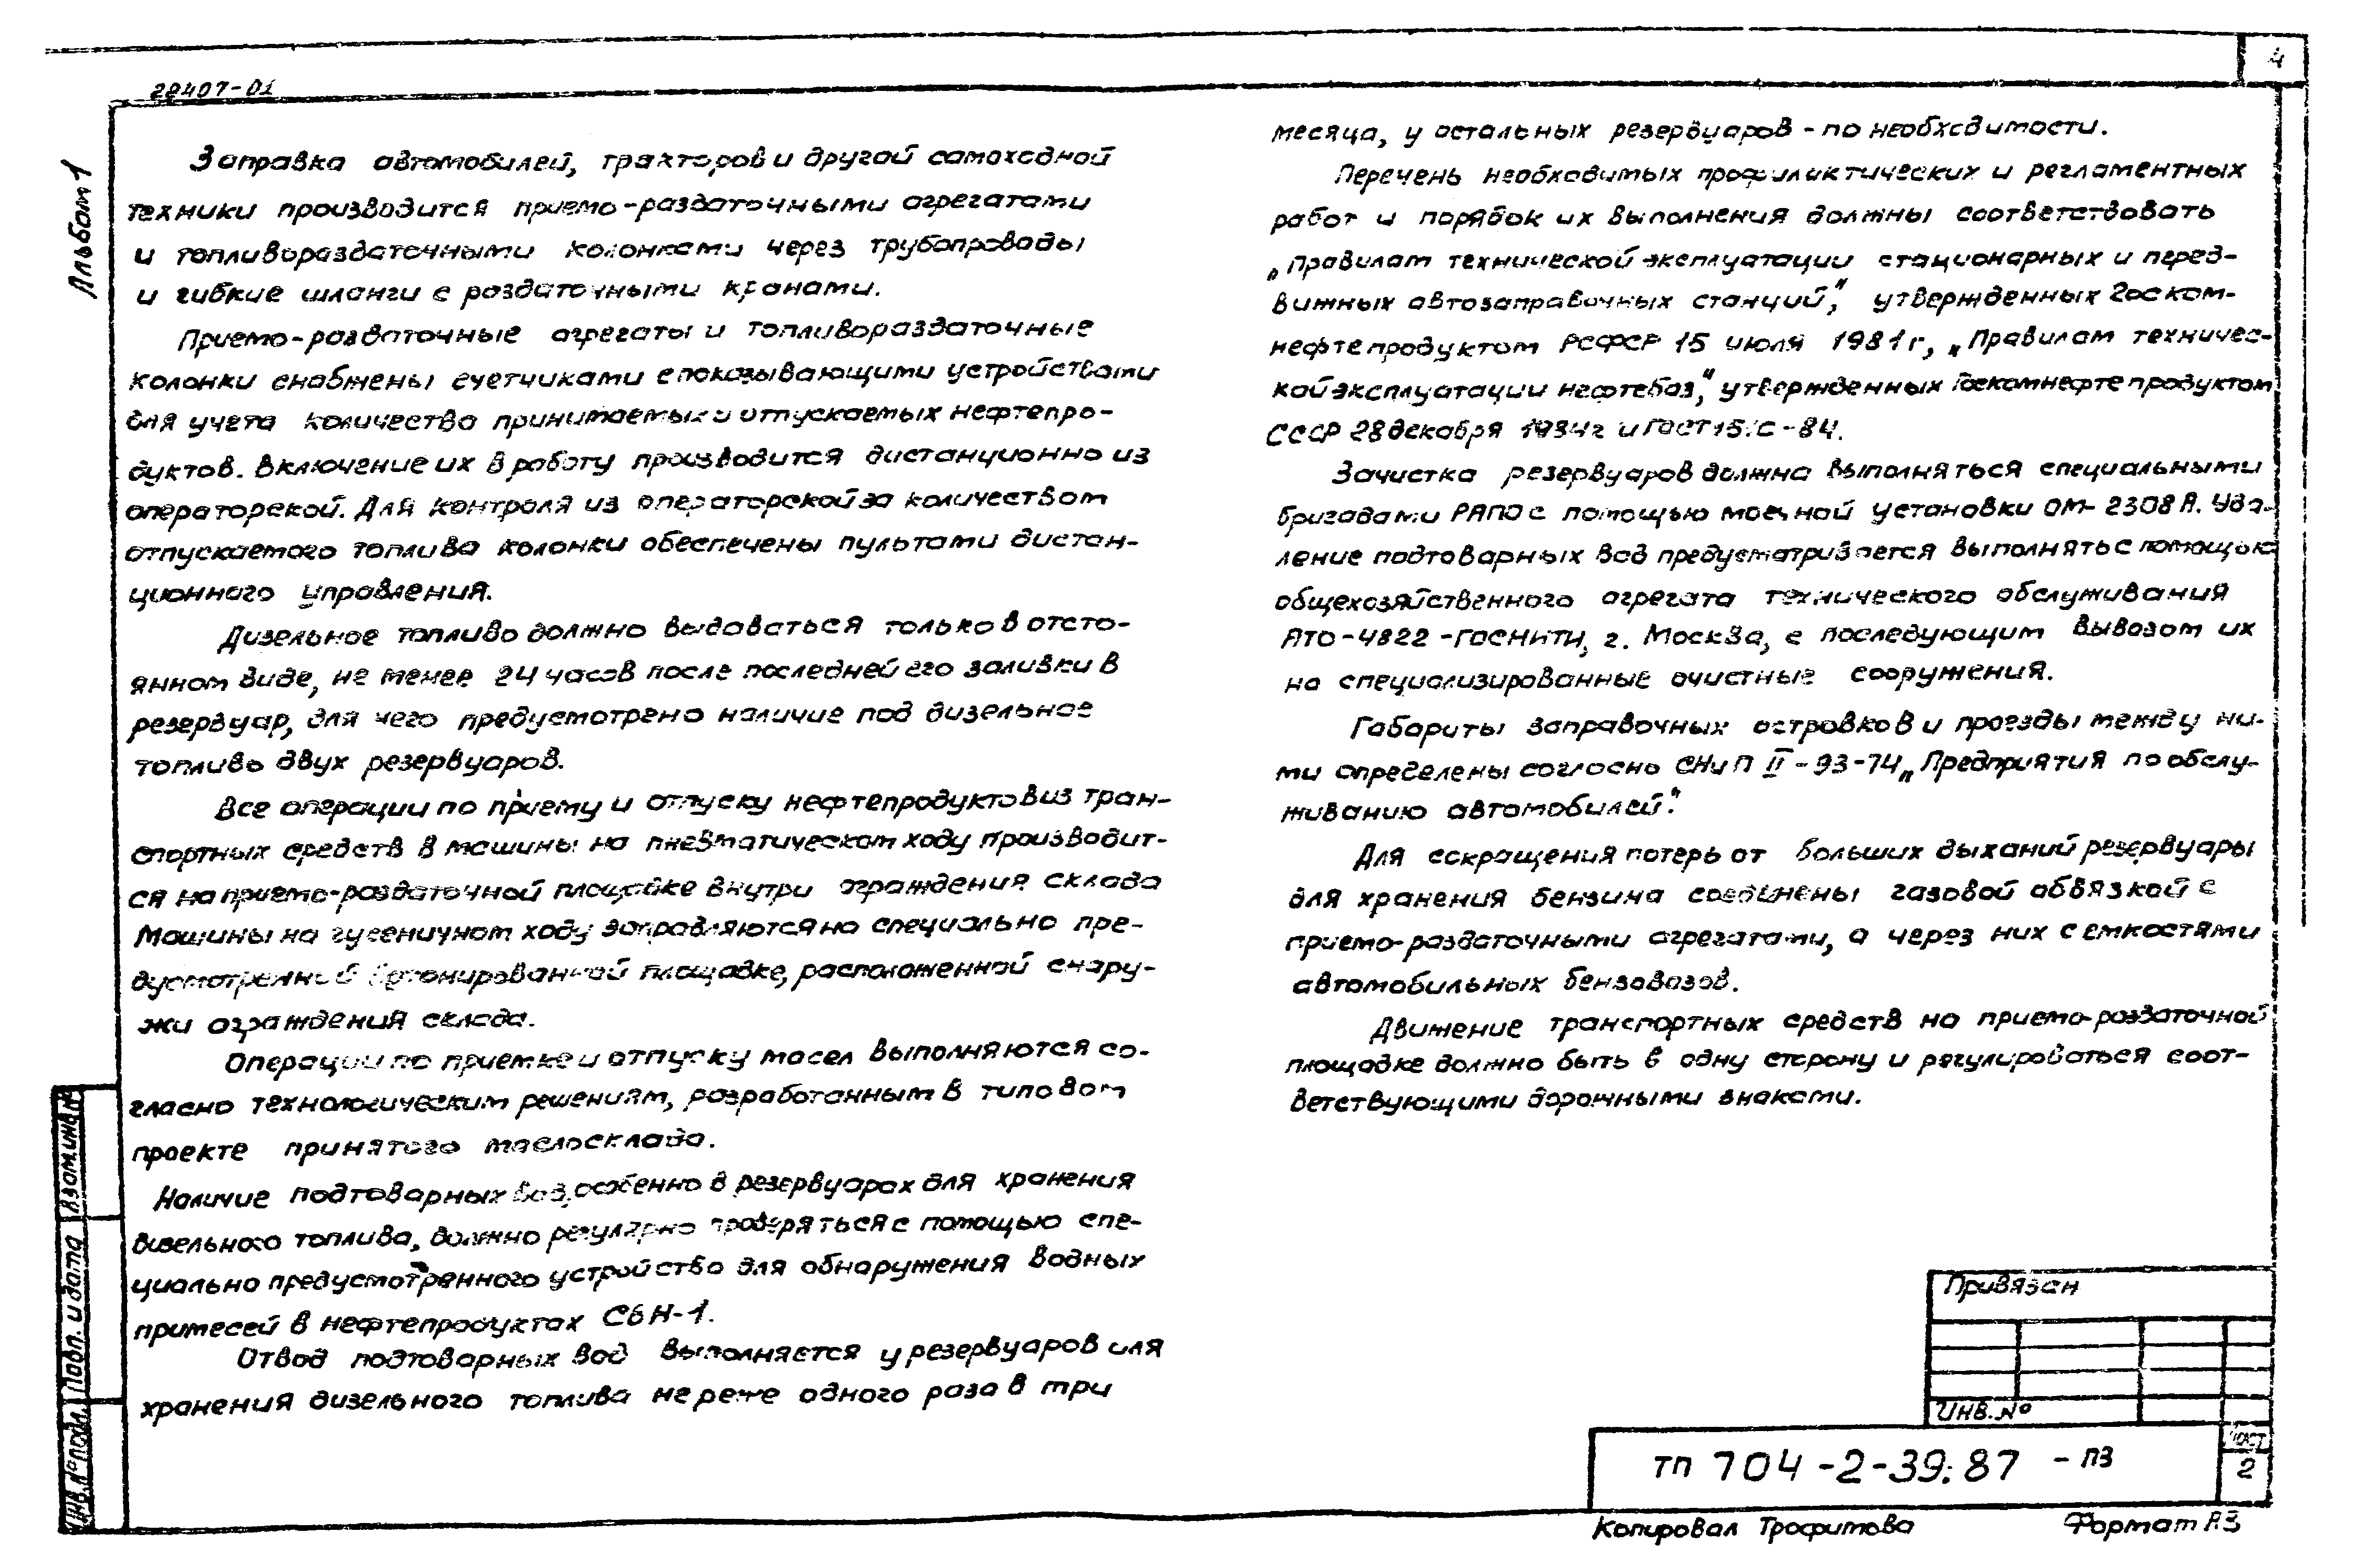 4
22407-01
Альбом 1
Заправка автомобилей, тракторов и другой самоходной
техники производится приемо-раздаточными агрегатами
и топливораздаточными колонками через трубопроводы
и гибкие шланги с раздаточными кранами.
Приемо-раздаточные агрегаты и топливораздаточные
колонки снабжены счетчиками с показывающими устройствами
для учета количества принимаемых и отпускаемых нефтепро-
дуктов. Включение их в работу производится дистанционно из
операторской. Для контроля из операторской за количеством
отпускаемого топлива колонки обеспечены пультами дистан-
ционного управления.
Дизельное топливо должно выдаваться только в отсто-
янном виде, не менее 24 часов после последней его заливки в
резервуар, для чего предусмотрено наличие под дизельное
топливо двух резервуаров.
Все операции по приему и отпуску нефтепродуктов из тран-
спортных средств в машины на пневматическом ходу производит-
ся на приемо-раздаточной площадке внутри ограждения склада
Машины на гусеничном ходу заправляются на специально пре-
дусмотренной бетонированной площадке, расположенной снару-
жи ограждения склада.
Операции по приемке и отпуску масел выполняются со-
гласно технологическим решениям, разработанным в типовом
проекте принятого маслосклада.
Наличие подтоварных вод, особенно в резервуарах для хранения
дизельного топлива, должно регулярно проверяться с помощью спе-
циально предусмотренного устройства для обнаружения водных
примесей в нефтепродуктах СБН-1.
Отвод подтоварных вод выполняется у резервуаров для
хранения дизельного топлива не реже одного раза в три
месяца, у остальных резервуаров - по необходимости.
Перечень необходимых профилактических и регламентных
работ и порядок их выполнения должны соответствовать
„Правилам технической эксплуатации стационарных и перед-
вижных автозаправочных станций", утвержденных Госком-
нефтепродуктом РСФСР 15 июля 1981г, „Правилам техничес-
кой эксплуатации нефтебаз", утвержденных Госкомнефтепродуктом
СССР 28 декабря 1984г и ГОСТ 1510-84.
Зачистка резервуаров должна выполняться специальными
бригадами РАПО с помощью моечной установки ОМ-2308А. Уда-
ление подтоварных вод предусматривается выполнять с помощью
общехозяйственного агрегата технического обслуживания
АТО-4822-ГОСНИТИ, г. Москва, с последующим вывозом их
на специализированные очистные сооружения.
Габариты заправочных островков и проезды между ни-
ми определены согласно СНиП II-93-74 „Предприятия по обслу-
живанию автомобилей".
Для сокращения потерь от больших дыханий резервуары
для хранения бензина соединены газовой обвязкой с
приемо-раздаточными агрегатами, а через них с емкостями
автомобильных бензовозов.
Движение транспортных средств на приемо-раздаточной
площадке должно быть в одну сторону и регулироваться соот-
ветствующими дорожными знаками.
Привязан
ИНВ.№
ТП 704-2-39.87 -ПЗ
Лист
2
Копировал Трофимова
Формат А3
Взам.инв.№
Подп. и дата
Инв.№ подл.